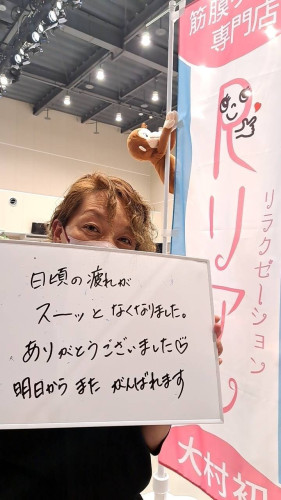 日頃の疲れが
スーッと なくなりました。
ありがとうございました♡
明日から また がんばれます
筋膜
専門店
リア
リラクゼーション
大村初